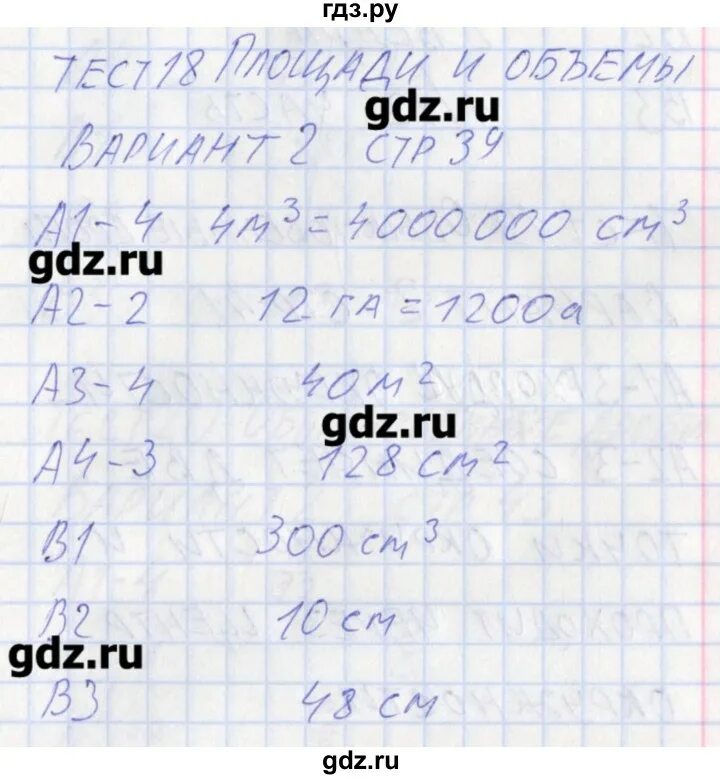 гдз.ру
ТЕСТ 18 ПЛОЩАДИ И ОБЪЕМЫ
gdz.ru
ВАРИАНТ 2 СТР 39
А1-4 4м³ = 4000000 см³
gdz.ru
А2-2 12 га = 1200а
А3-4 40 м²
gdz.ru
А4-3 128 см²
В1 300 см³
В2 10 см
gdz.ru
В3 48 см
gdz.ru